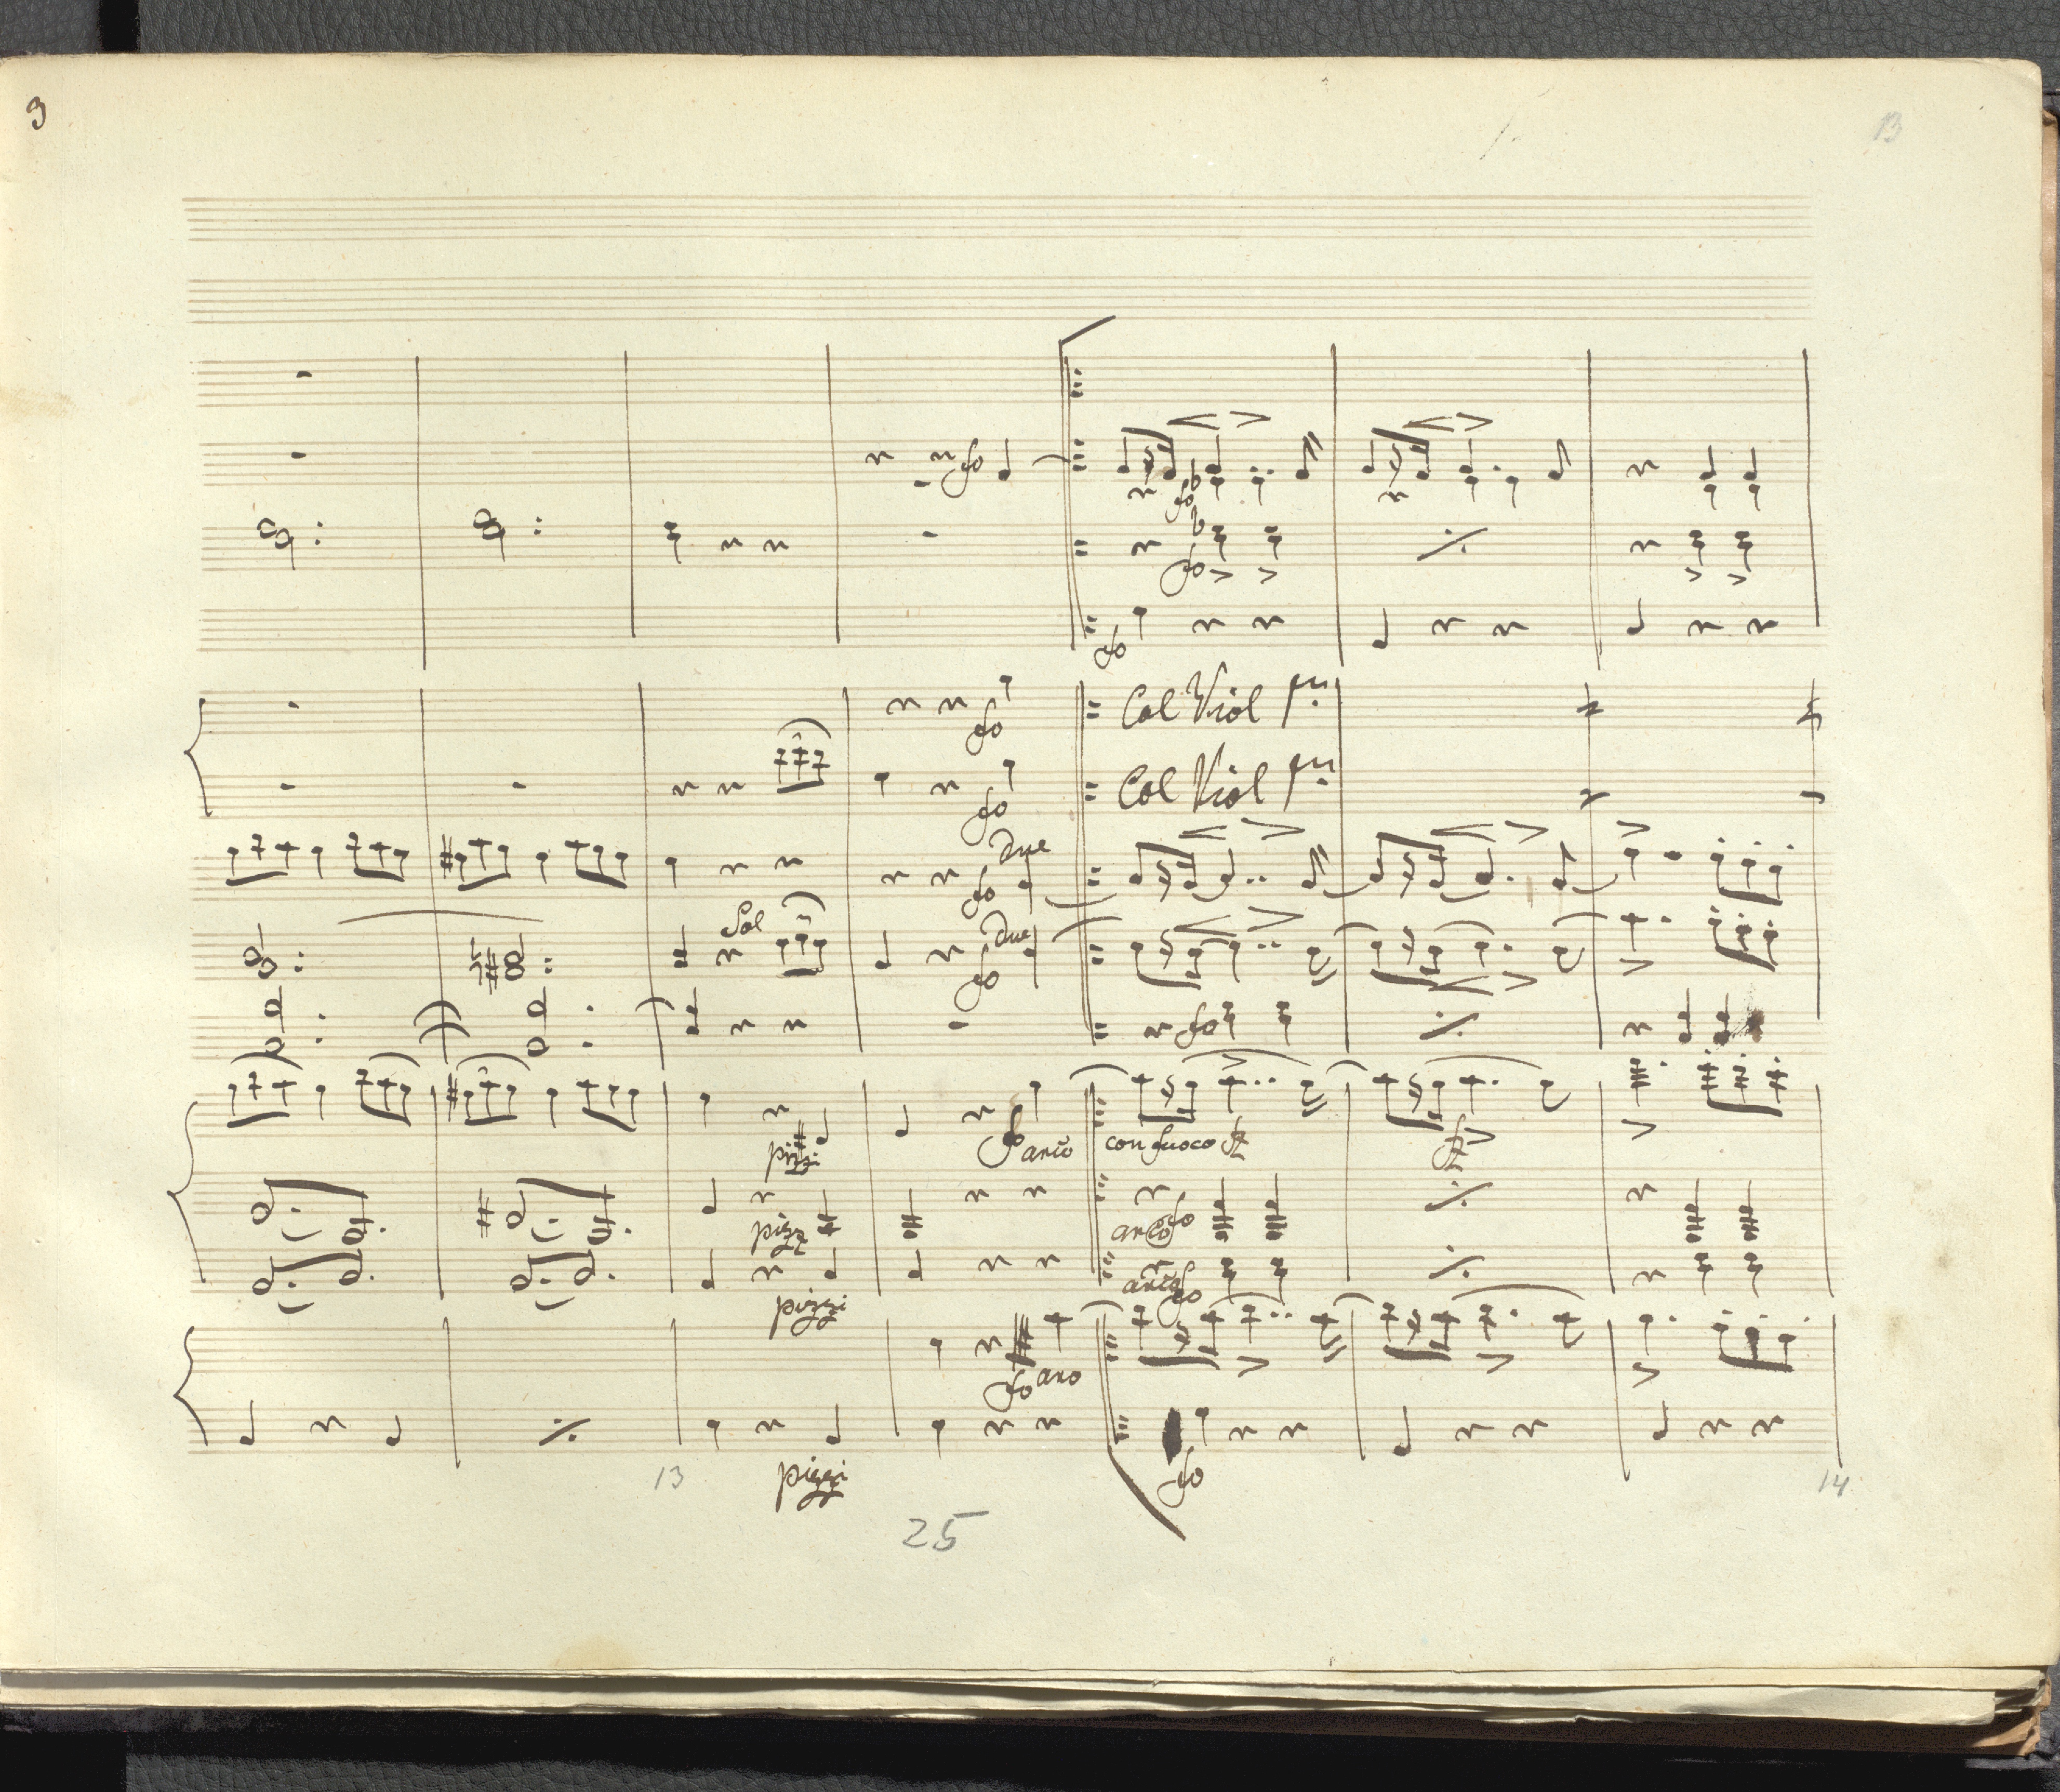 9
13
fo
fo
fo
fo
fo Col Viol pmo
fo Col Viol pmo
due
fo
Sol
due
fo
fo
pizzi fo arco con fuoco fz fz
pizz arco fo
pizzi arco fo
fo arco
pizzi fo
13 14
25